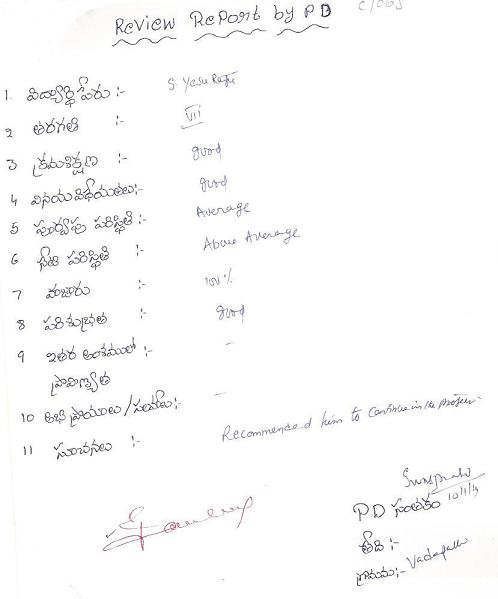 Review Report by PD
1. విద్యార్థి పేరు :- S. Yesu Raju
2 తరగతి :- VII
3 క్రమశిక్షణ :- good
4 వినయవిధేయతలు:- good
5 పూర్వపు పరిస్థితి :- Average
6 నేటి పరిస్థితి :- Above Average
7 హాజరు :- 100%
8 పరిశుభ్రత :- good
9 ఇతర అంశములలో :- -
ప్రావిణ్యత
10 అభిప్రాయాలు / సలహాలు:- -
11 సూచనలు :- Recommended him to continue in the
PD సంతకం
తేది :-
గ్రామము:-